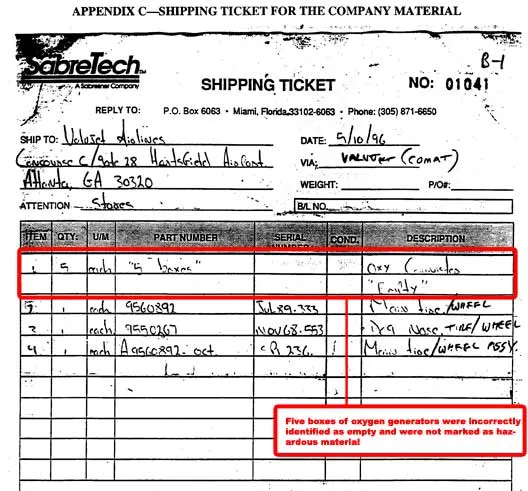 APPENDIX C—SHIPPING TICKET FOR THE COMPANY MATERIAL
B-1
SabreTech
A Sabreliner Company
SHIPPING TICKET
NO: 01041
REPLY TO: P.O. Box 6063 • Miami, Florida 33102-6063 • Phone: (305) 871-6650
SHIP TO: ValuJet Airlines
DATE: 5/10/96
Concourse C/gate 28 Hartsfield Airport
VIA: VALUJET (COMAT)
Atlanta, GA 30320
WEIGHT: P/O#:
ATTENTION Stores
B/L NO.
ITEM QTY: U/M PART NUMBER SERIAL NUMBER COND. DESCRIPTION
1 5 each "5 boxes" Oxy Canisters
"Empty"
2 1 each 9560892 Jul89-333 Main tire/WHEEL
3 1 each 9550267 Nov68-553 Nose TIRE/WHEEL
4 1 each A9560892 oct. Main tire/WHEEL ASSY.
Five boxes of oxygen generators were incorrectly
identified as empty and were not marked as haz-
ardous material